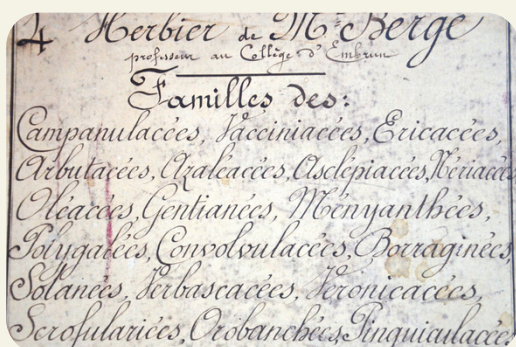 4 Herbier de Mr. Berge
professeur au Collège d'Embrun
Familles des:
Campanulacées, Vacciniacées, Ericacées,
Arbutacées, Azaléacées, Asclépiacées, Nériacées
Oléacées, Gentianées, Ményanthées,
Polygalées, Convolvulacées, Borraginées,
Solanées, Verbascacées, Véronicacées,
Scrofulariées, Orobanchées, Pinguiculacées